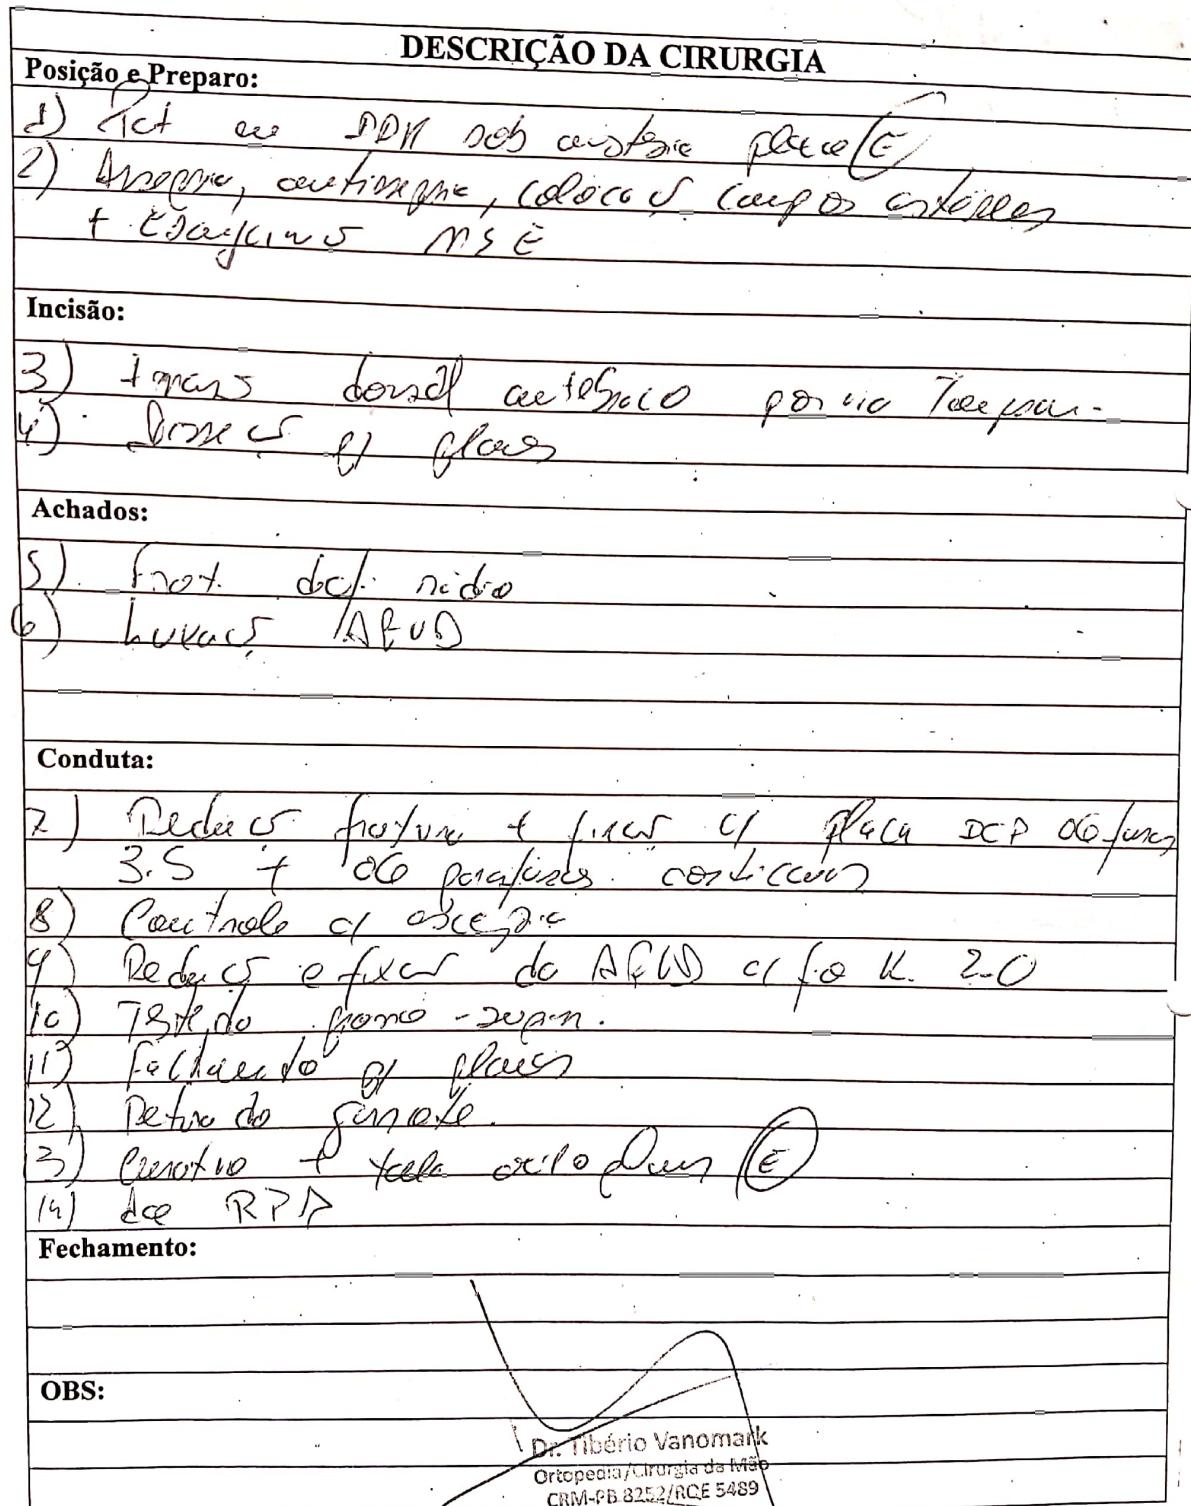 DESCRIÇÃO DA CIRURGIA
Posição e Preparo:
1) Pct em DDH sob anestesia plexo (E)
2) Assepsia, antissepsia, colocaç campos estéreis
+ MSE
Incisão:
3) dorsal por via
4) Dissecç p/ planos
Achados:
5) Frat. rádio
6) Luxaç ARUD
Conduta:
7) Reduç fratura + fixaç c/ placa DCP 06 furos
3.5 + 06 parafusos corticais
8) Controle c/ escopia
9) Reduç e fixaç da ARUD c/ fio K. 2.0
10) Testado prono-supin.
11) Fechamento p/ planos
12) Retirado garrote.
3) Curativo + tala (E)
14) RPA
Fechamento:
OBS:
Dr. Tibério Vanomark
Ortopedia/Cirurgia da Mão
CRM-PB 8252/RQE 5489